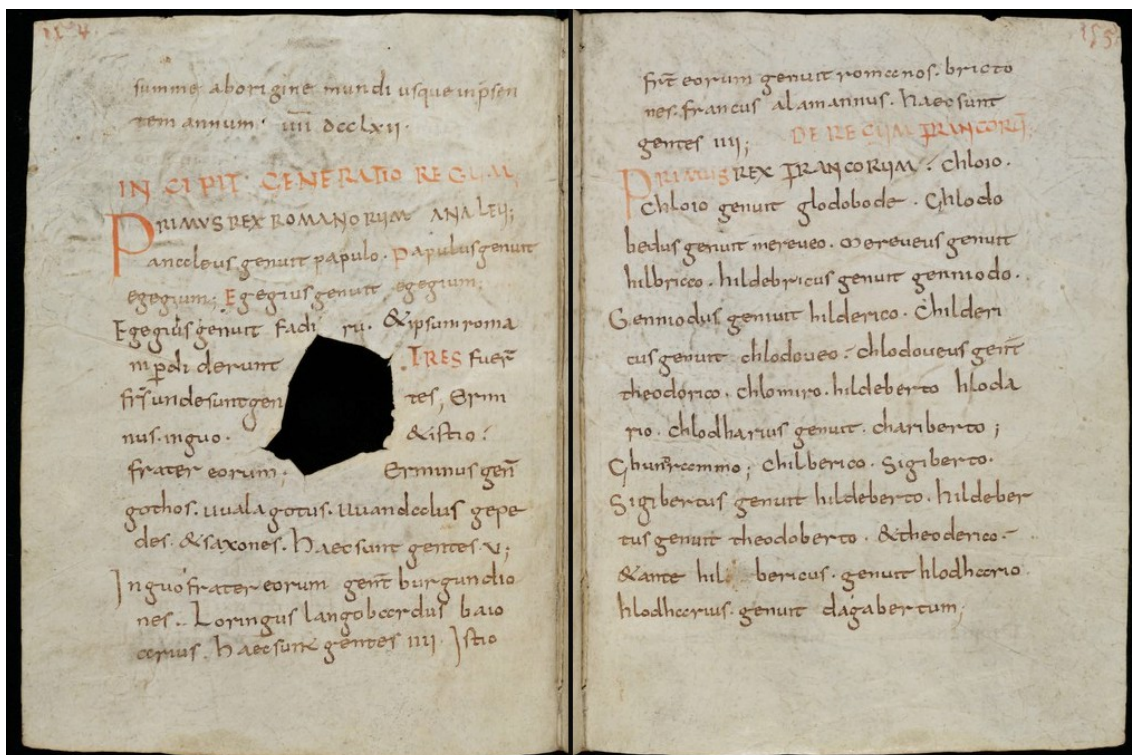 154
summe aborigine mundi usque inp̄sen
tem annum · ūīī dcclxii ·
INCIPIT GENERATIO REGUM;
PRIMVS REX ROMANORUM ANALEU;
Pancaleus genuit papulo · Papulus genuit
egegium; Egegius genuit egegium;
Egegius genuit fadi ru · & ipsum roma
ni ꝑdi derunt TRES fuer̄
fr̄s unde sunt gen tes, Ermi
nus · inguo · & istio :
frater eorum; Erminus gen̄
gothos · uuala gotus · uuandalus gepe
des · & saxones · haec sunt gentes v;
Inguo frater eorum gen̄t burgundio
nes · Loringus langobardus baio
arius · haec sunt gentes iiii · Istio
155
fr̄t eorum genuit romanos · bricto
nes · francus alamannus · haec sunt
gentes iiii; DE REGUM FRANCORŪ;
PRIMUS REX FRANCORUM · Chloio ·
Chloio genuit glodobode · Chlodo
bedus genuit mereueo · Mereueus genuit
hilbricco · hildebricus genuit genniodo ·
Genniodus genuit hilderico · Childeri
cus genuit chlodoueo · chlodoueus gen̄t
theodorico · chlomiro · hildeberto hloda
rio · Chlodharius genuit · chariberto ;
chilberico · Sigiberto ·
Sigibertus genuit hildeberto · hildeber
tus genuit theodoberto · & theoderico ·
& ante hil bericus · genuit hlodhario
hlodharius · genuit dagabertum;